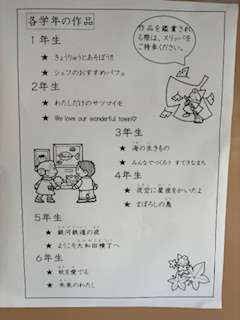 各学年の作品
作品を鑑賞され
る際は、スリッパを
ご持参ください。
1年生
★ きょうりゅうとあそぼう!!
★ シェフのおすすめパフェ
2年生
★ わたしだけのサツマイモ
★ We love our wonderful town♡
3年生
★ 海の生きもの
★ みんなでつくろう すてきなまち
4年生
★ 夜空に星座をかいたよ
★ まぼろしの鳥
5年生
★ 銀河鉄道の夜
★ ようこそ大和田横丁へ
6年生
★ 秋を愛でる
★ 未来のわたし